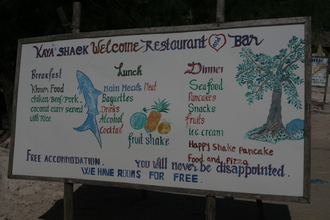 KAYA SHACK Welcome Restaurant Bar
Breakfast
Khmer Food
chiken/Beef/Pork
coconut curry served
with rice
Lunch
Main Meals Meat
Baguettes
Drinks
Alcohol
Cocktail
fruit shake
Dinner
Seafood
Pancakes
Snacks
fruits
ice cream
Happy Shake Pancake
Food and Pizza
FREE ACCOMMODATION. YOU WILL NEVER BE DISAPPOINTED.
WE HAVE ROOMS FOR FREE.